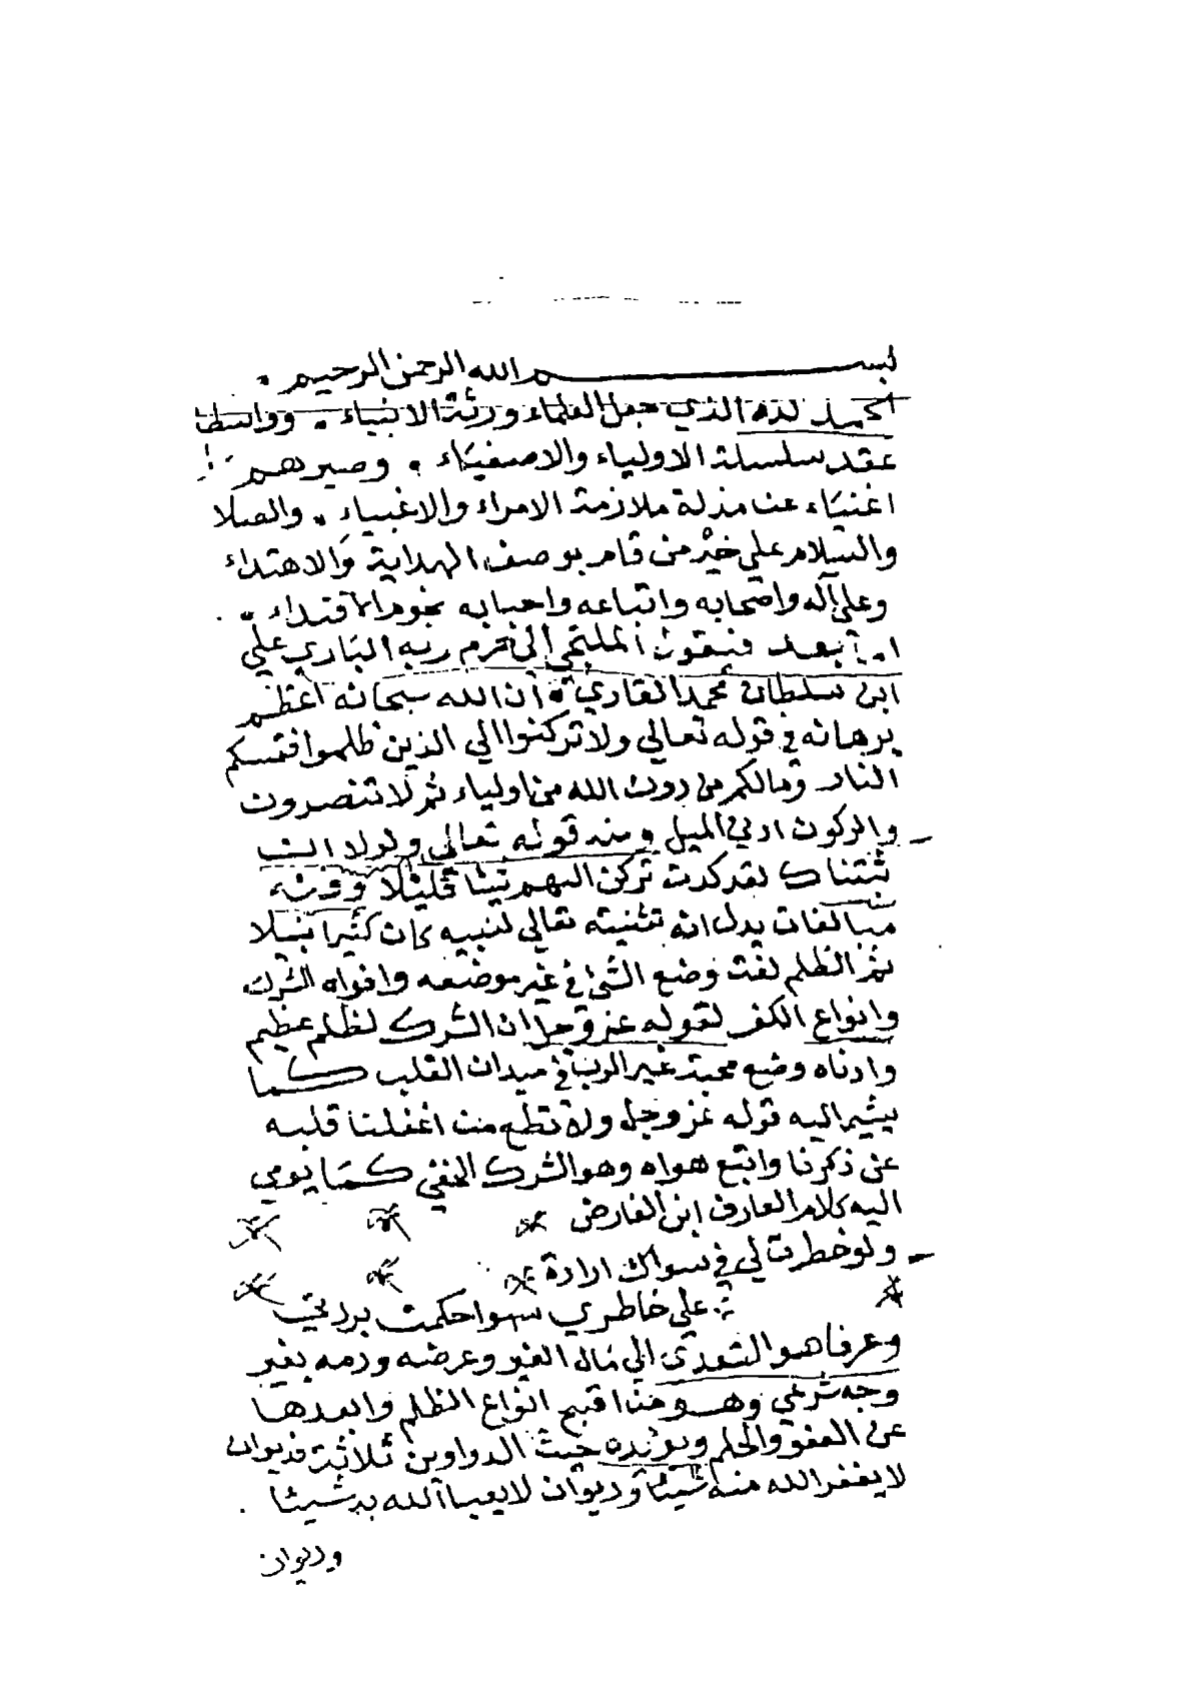 بسم الله الرحمن الرحيم
الحمد لله الذي جعل العلماء ورثة الانبياء . وواسطة
عقد سلسلة الاولياء والاصفياء . وصيرهم
اغنياء عن مذلة ملازمة الامراء والاغبياء . والصلا
والسلام علي خير من قام بوصف الهداية والاهتداء
وعلى آله واصحابه واتباعه واحبابه نجوم الاقتداء .
اما بعد فيقول الملتجي الى حرم ربه الباري علي
ابن سلطان محمد القاري ان الله سبحانه اعظم
برهانه في قوله تعالي ولا تركنوا الي الذين ظلموا فتمسكم
النار ومالكم من دون الله من اولياء ثم لا تنصرون
والركون ادني الميل ومنه قوله تعالي ولولا ان
ثبتناك لقد كدت تركن اليهم شيئا قليلا وفيه
مبالغات يدل انه تثبيته تعالي لنبيه كان كثيرا
ثم الظلم لغة وضع الشئ في غير موضعه واقواه الشرك
وانواع الكفر لقوله عز وجل ان الشرك لظلم عظيم
وادناه وضع محبة غير الرب في ميدان القلب كما
يشير اليه قوله عز وجل ولا تطع من اغفلنا قلبه
عن ذكرنا واتبع هواه وهو الشرك الخفي كما يومي
اليه كلام العارف ابن الفارض
ولو خطرت لي في سواك ارادة
علي خاطري سهوا حكمت بردتي
وعرفا هو التعدي الي مال الغير وعرضه ودمه بغير
وجه شرعي وهو من اقبح انواع الظلم وابعدها
عن العفو والحلم ويؤيده حيث الدواوين ثلاثة فديوان
لا يغفر الله منه شيئا وديوان لا يعبا الله به شيئا .
وديوان